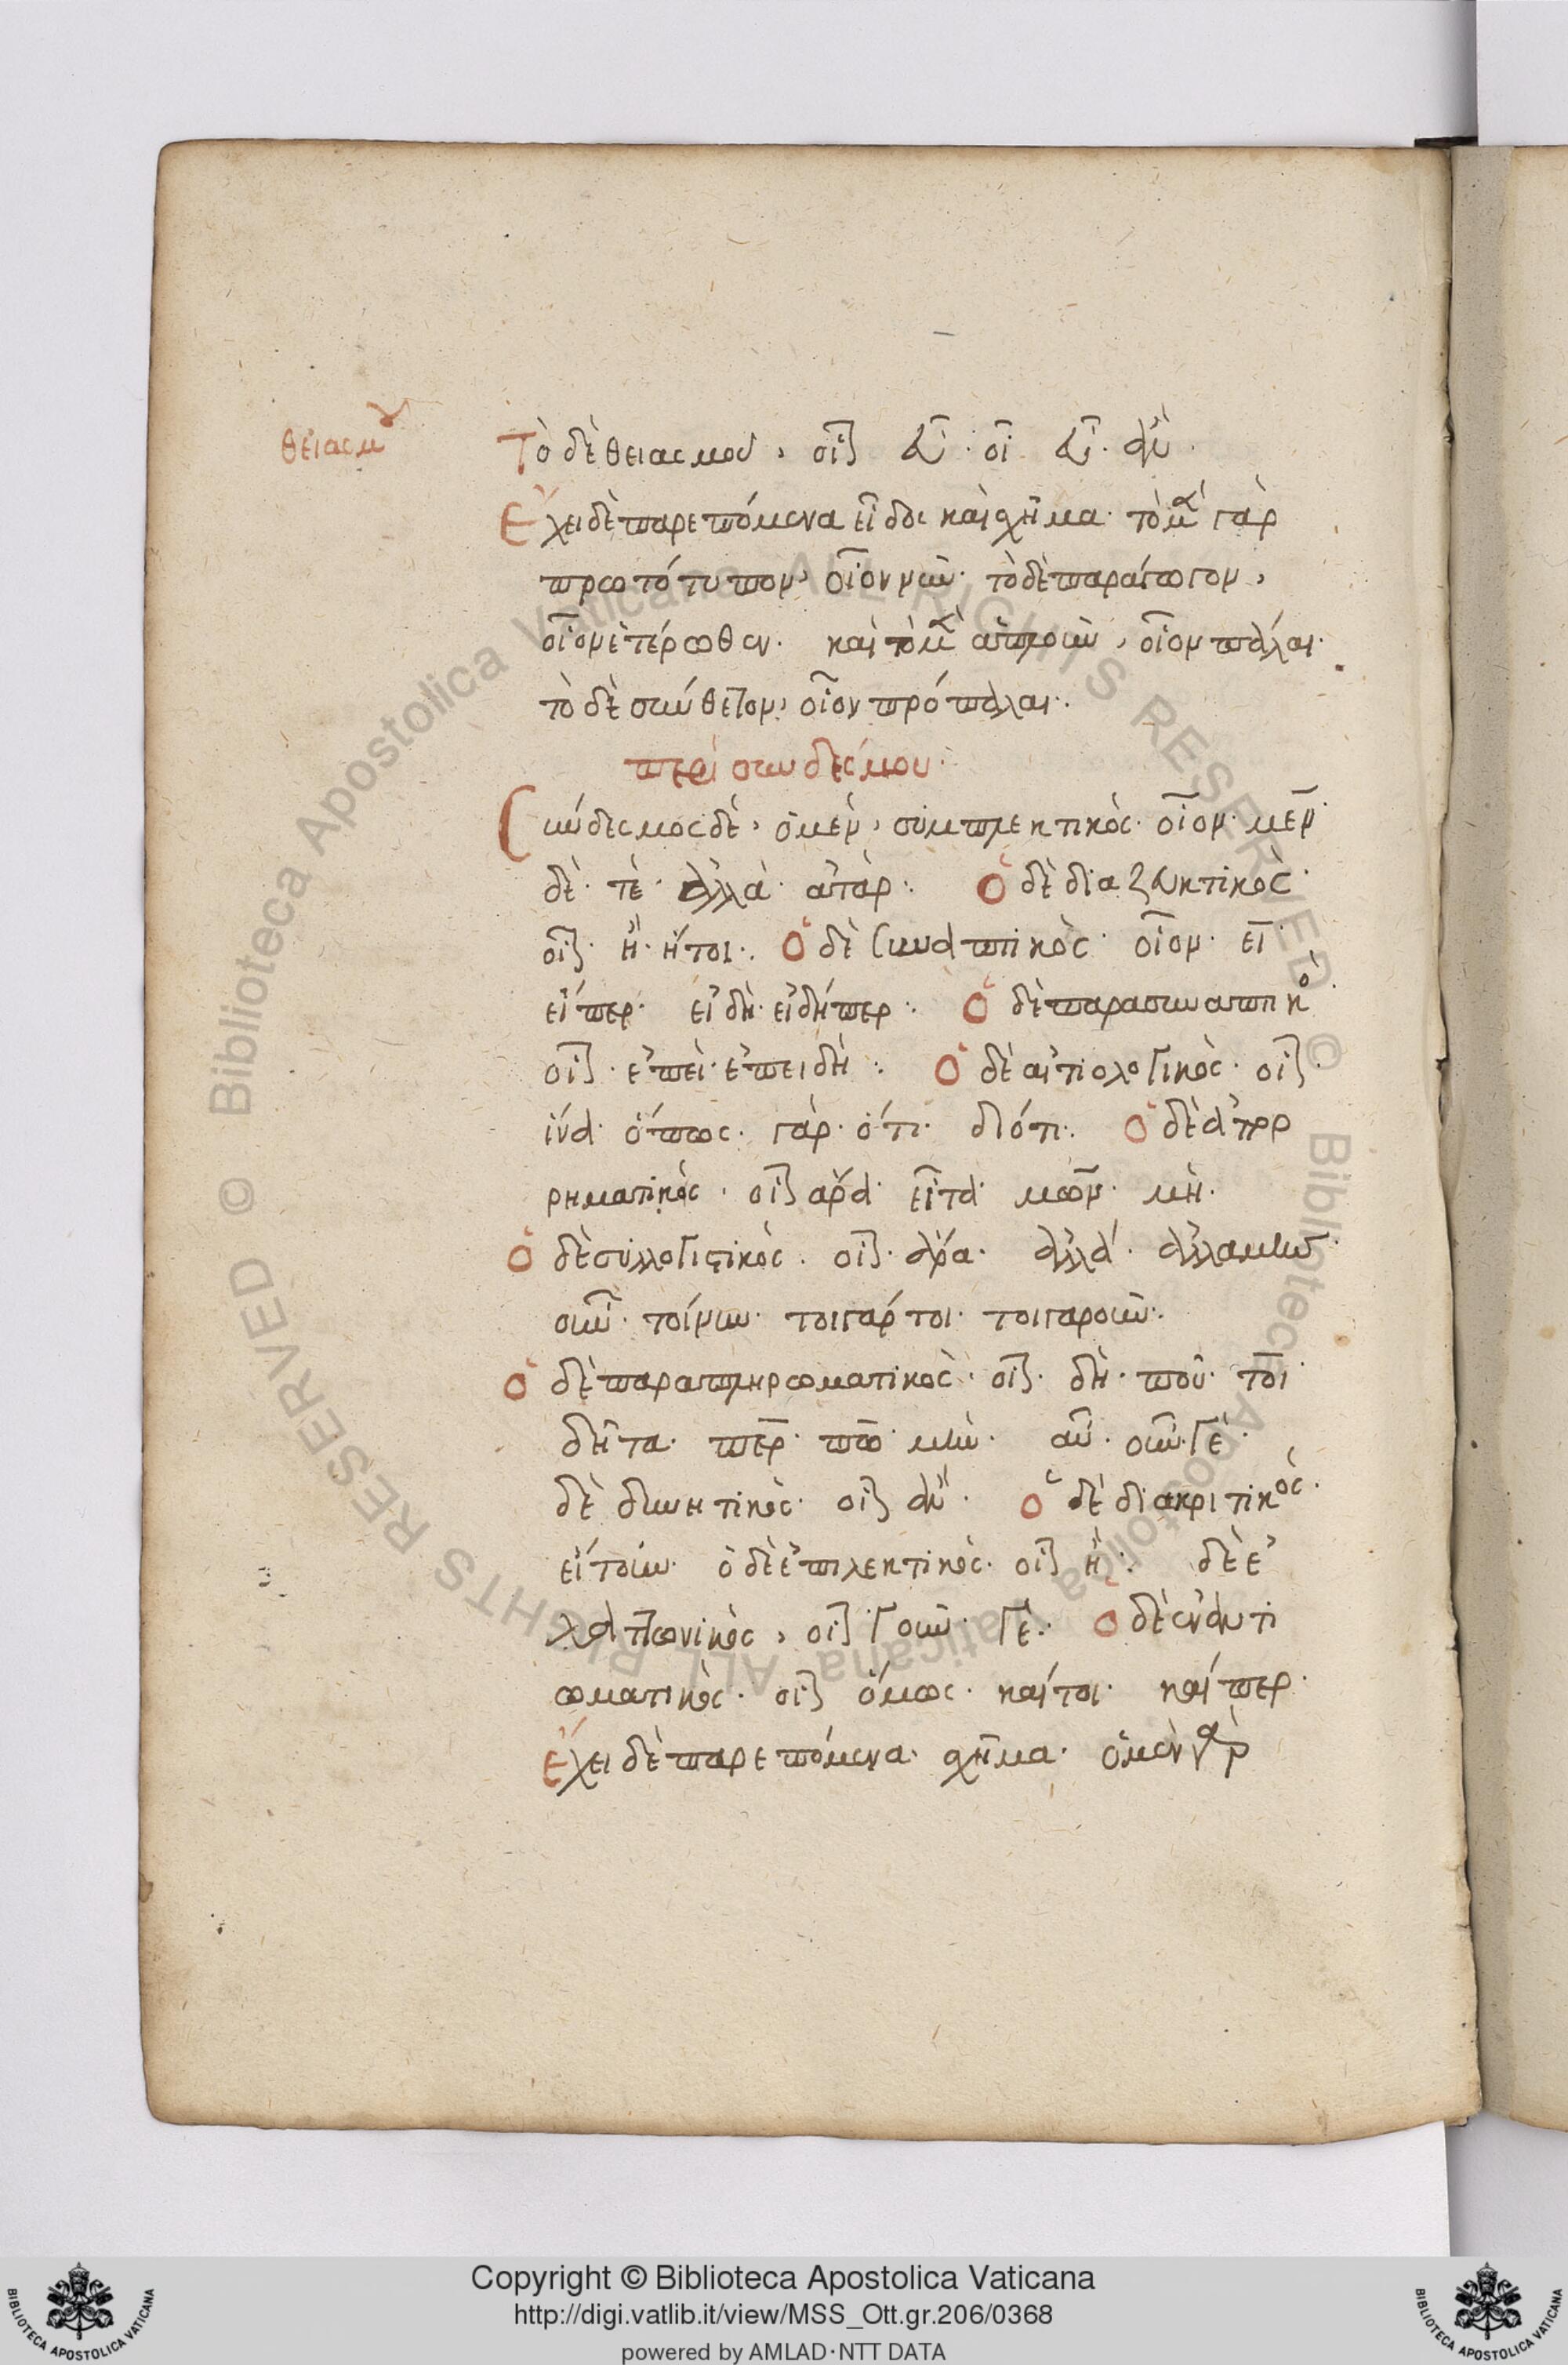 θειασμοῦ
Τὸ δὲ θειασμοῦ, οἷον εὖ· οἷ εὖ· εὐ·
Ἔχει δὲ παρεπόμενα εἶδος καὶ σχῆμα· τὸ μὲν γὰρ
πρωτότυπον, οἷον νῦν· τὸ δὲ παράγωγον,
οἷον ἑτέρωθεν. καὶ τὸ μὲν ἁπλοῦν, οἷον πάλαι·
τὸ δὲ σύνθετον, οἷον πρόπαλαι.
περὶ συνδέσμου·
Σύνδεσμος δὲ, ὁ μὲν, συμπλεκτικὸς· οἷον· μὲν·
δὲ· τὲ· ἀλλὰ· ἀτὰρ: Ὁ δὲ διαζευκτικὸς·
οἷον· ἢ· ἤτοι: Ὁ δὲ συναπτικὸς· οἷον· εἰ·
εἴπερ· εἰ δὴ· εἰδήπερ: Ὁ δὲ παρασυναπτικὸ
οἷον· ἐπεὶ· ἐπειδὴ: Ὁ δὲ αἰτιολογικὸς· οἷον·
ἵνα· ὅπως· γὰρ· ὅτι· διότι: Ὁ δὲ ἀπορ
ρηματικὸς· οἷον ἆρα· εἶτα· μῶν· μὴ.
Ὁ δὲ συλλογιστικὸς. οἷον· ἄρα· ἀλλά· ἀλλαμὴν·
οὖν· τοίνυν· τοιγάρτοι· τοιγαροῦν:
Ὁ δὲ παραπληρωματικὸς· οἷον· δὴ· ποῦ· τοὶ·
δῆτα· πὲρ· πὼ· μὴν· αὖ· οὖν· γὲ·
δὲ δυνητικὸς· οἷον ἂν· ὁ δὲ διακριτικὸς·
εἴτουν· ὁ δὲ ἐπιλεκτικὸς· οἷον ἢ: δὲ ἐ
λαττωνικὸς, οἷον γοῦν· γὲ: ὁ δὲ ἐναντι
ωματικὸς· οἷον ὅμως· καίτοι· καίπερ·
Ἔχει δὲ παρεπόμενα· σχῆμα· ὁ μὲν γὰρ